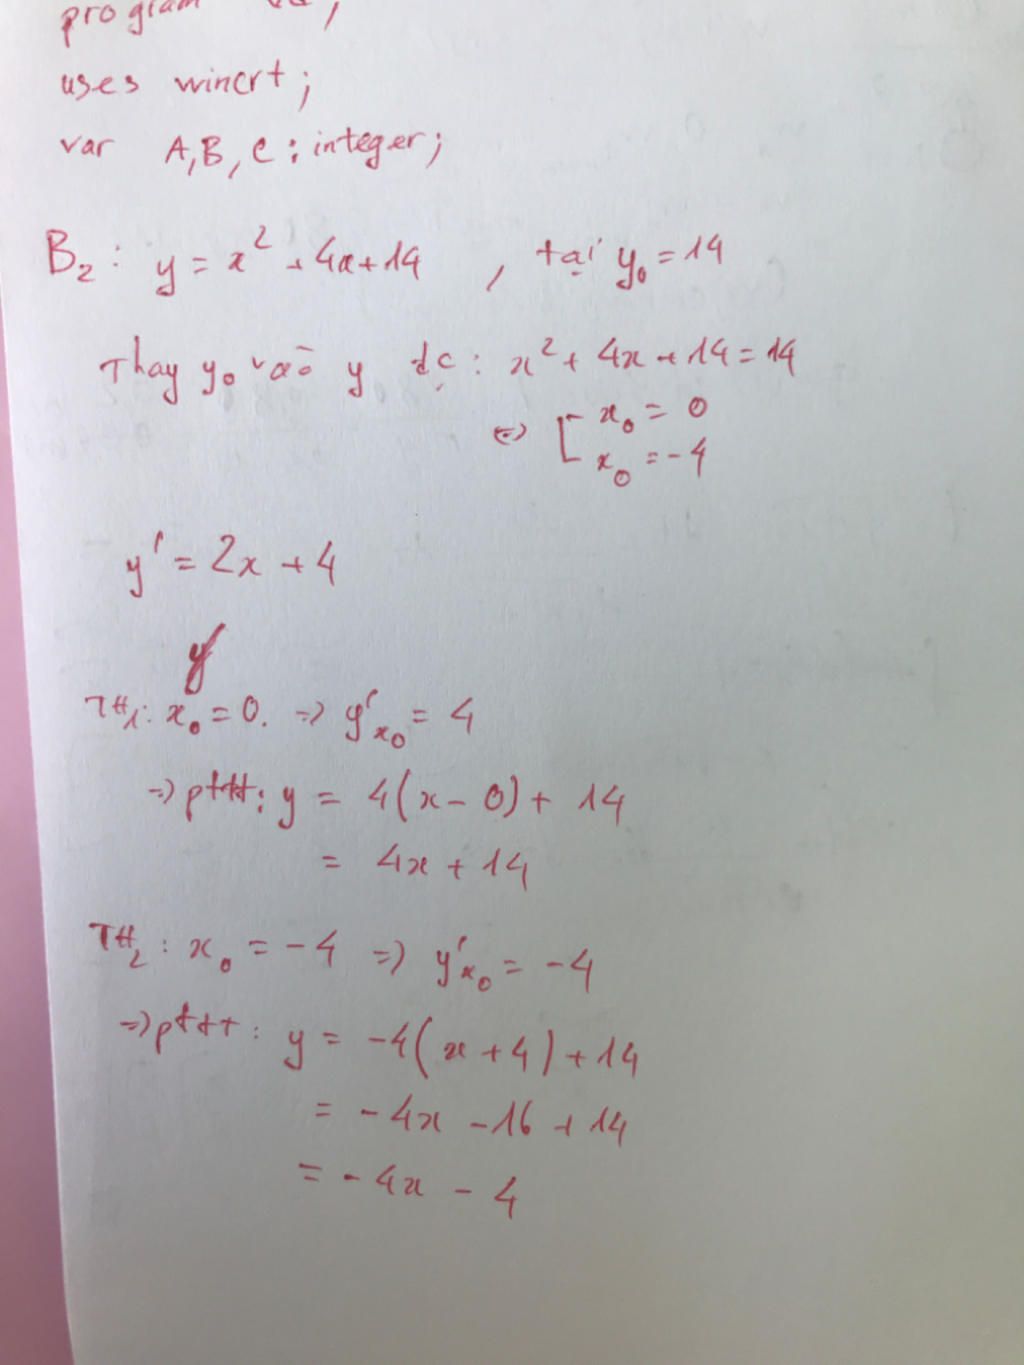 program
uses wincrt;
var A, B, C : integer;
B₂ : y = x² + 4x + 14 , tại y₀ = 14
Thay y₀ vào y đc : x² + 4x + 14 = 14
⇔ [ x₀ = 0
x₀ = -4
y' = 2x + 4
y
TH₁: x₀ = 0. => y'x₀ = 4
=> pttt: y = 4(x - 0) + 14
= 4x + 14
TH₂ : x₀ = -4 => y'x₀ = -4
=> pttt : y = -4(x + 4) + 14
= -4x - 16 + 14
= -4x - 4